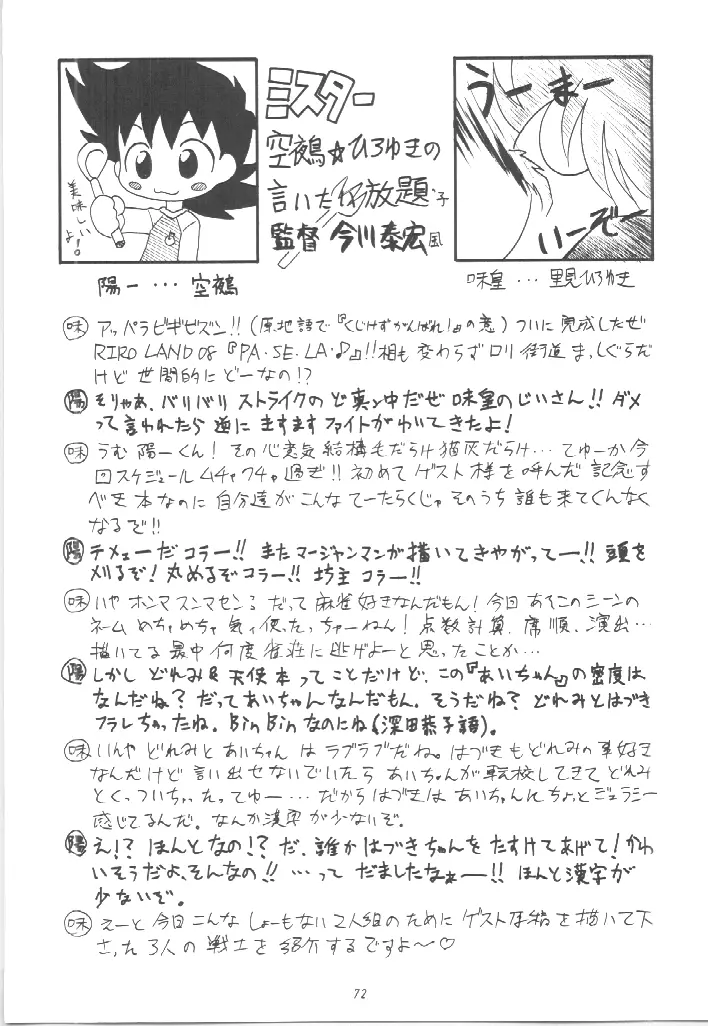 ミスター
空鵺☆ひろゆきの
言いたい放題
監督 今川泰宏風
美味しいよ!
うーまー
いーぞー
陽一…空鵺
味皇…里見ひろゆき
味 アッパラビギビズン!!(原地語で『くじけずがんばれ!』の意)ついに完成したぜ
RIRO LAND 08『PA・SE・LA・♪』!!相も変わらずロリ街道まっしぐらだ
けど世間的にどーなの!?
陽 そりゃあ、バリバリ ストライクのど真ン中だぜ 味皇のじいさん!! ダメ
って言われたら逆に ますますファイトがわいてきたよ!
味 うむ 陽一くん! その心意気 結構毛だらけ猫灰だらけ… てゆーか今
回スケジュールムチャクチャ過ぎ!! 初めてゲスト様を呼んだ記念す
べき本なのに自分達がこんなてーたらくじゃそのうち誰も来てくんなく
なるぞ!!
陽 テメェーだコラー!! またマージャンマンガ描いてきやがってー!! 頭を
刈るぞ! 丸めるぞコラー!! 坊主コラー!!
味 いや ホンマスンマセンる だって麻雀好きなんだもん! 今回あそこのシーンの
ネームめちゃめちゃ気ィ使ったっちゃーねん! 点数計算、席順、演出…
描いてる最中何度雀荘に逃げよーと思ったことか…
陽 しかし どれみ&天使本ってことだけど、この『あいちゃん』の密度は
なんだね? だってあいちゃんなんだもん。そうだね? どれみとはづき
フラレちゃったね。Bin Binなのにね(深田恭子語)。
味 いんや どれみとあいちゃんはラブラブだね。はづきもどれみの事好き
なんだけど言い出せないでいたら あいちゃんが転校してきてどれみ
とくっついちゃったってゆー…だからはづきはあいちゃんにちょっとジェラシー
感じてるんだ。なんか漢字が少ないぞ。
陽 え!? ほんとなの!? だ、誰かはづきちゃんをたすけてあげて! かわ
いそうだよ、そんなの!! …って だましたなぁー!! ほんと漢字が
少ないぞ。
味 えーと 今回こんなしょーもない2人組のためにゲスト原稿を描いて下
さった3人の戦士を紹介するですよ〜♡
72